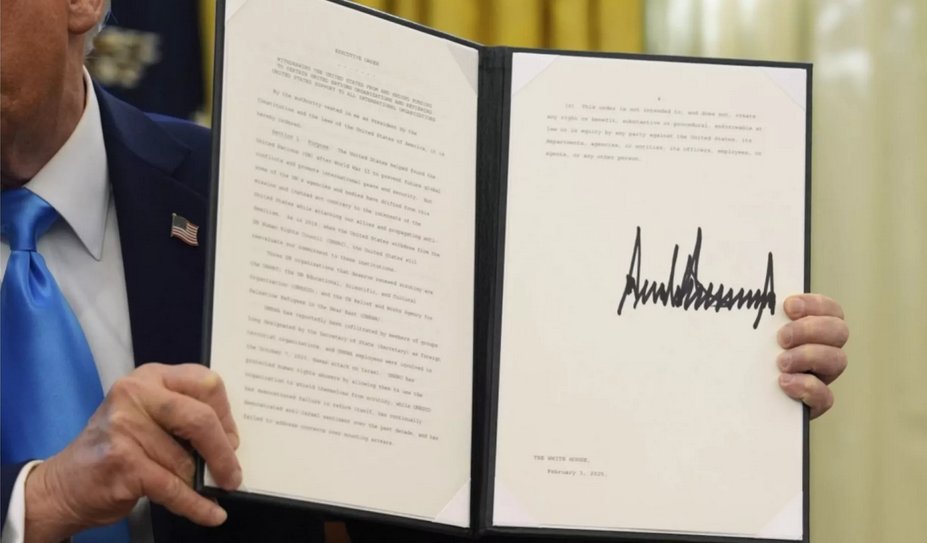 EXECUTIVE ORDER
WITHDRAWING THE UNITED STATES FROM AND ENDING FUNDING
TO CERTAIN UNITED NATIONS ORGANIZATIONS AND REVIEWING
UNITED STATES SUPPORT TO ALL INTERNATIONAL ORGANIZATIONS
By the authority vested in me as President by the
Constitution and the laws of the United States of America, it is
hereby ordered:
Section 1. Purpose. The United States helped found the
United Nations (UN) after World War II to prevent future global
conflicts and promote international peace and security. But
some of the UN's agencies and bodies have drifted from this
mission and instead act contrary to the interests of the
United States while attacking our allies and propagating anti-
Semitism. As in 2018, when the United States withdrew from the
UN Human Rights Council (UNHRC), the United States will
reevaluate our commitment to these institutions.
Three UN organizations that deserve renewed scrutiny are
the UNHRC; the UN Educational, Scientific, and Cultural
Organization (UNESCO); and the UN Relief and Works Agency for
Palestine Refugees in the Near East (UNRWA).
UNRWA has reportedly been infiltrated by members of groups
long designated by the Secretary of State (Secretary) as foreign
terrorist organizations, and UNRWA employees were involved in
the October 7, 2023, Hamas attack on Israel. UNHRC has
protected human rights abusers by allowing them to use the
organization to shield themselves from scrutiny, while UNESCO
has demonstrated failure to reform itself, has continually
demonstrated anti-Israel sentiment over the past decade, and has
failed to address concerns over mounting arrears.
4
(c) This order is not intended to, and does not, create
any right or benefit, substantive or procedural, enforceable at
law or in equity by any party against the United States, its
departments, agencies, or entities, its officers, employees, or
agents, or any other person.
THE WHITE HOUSE,
February
2025.